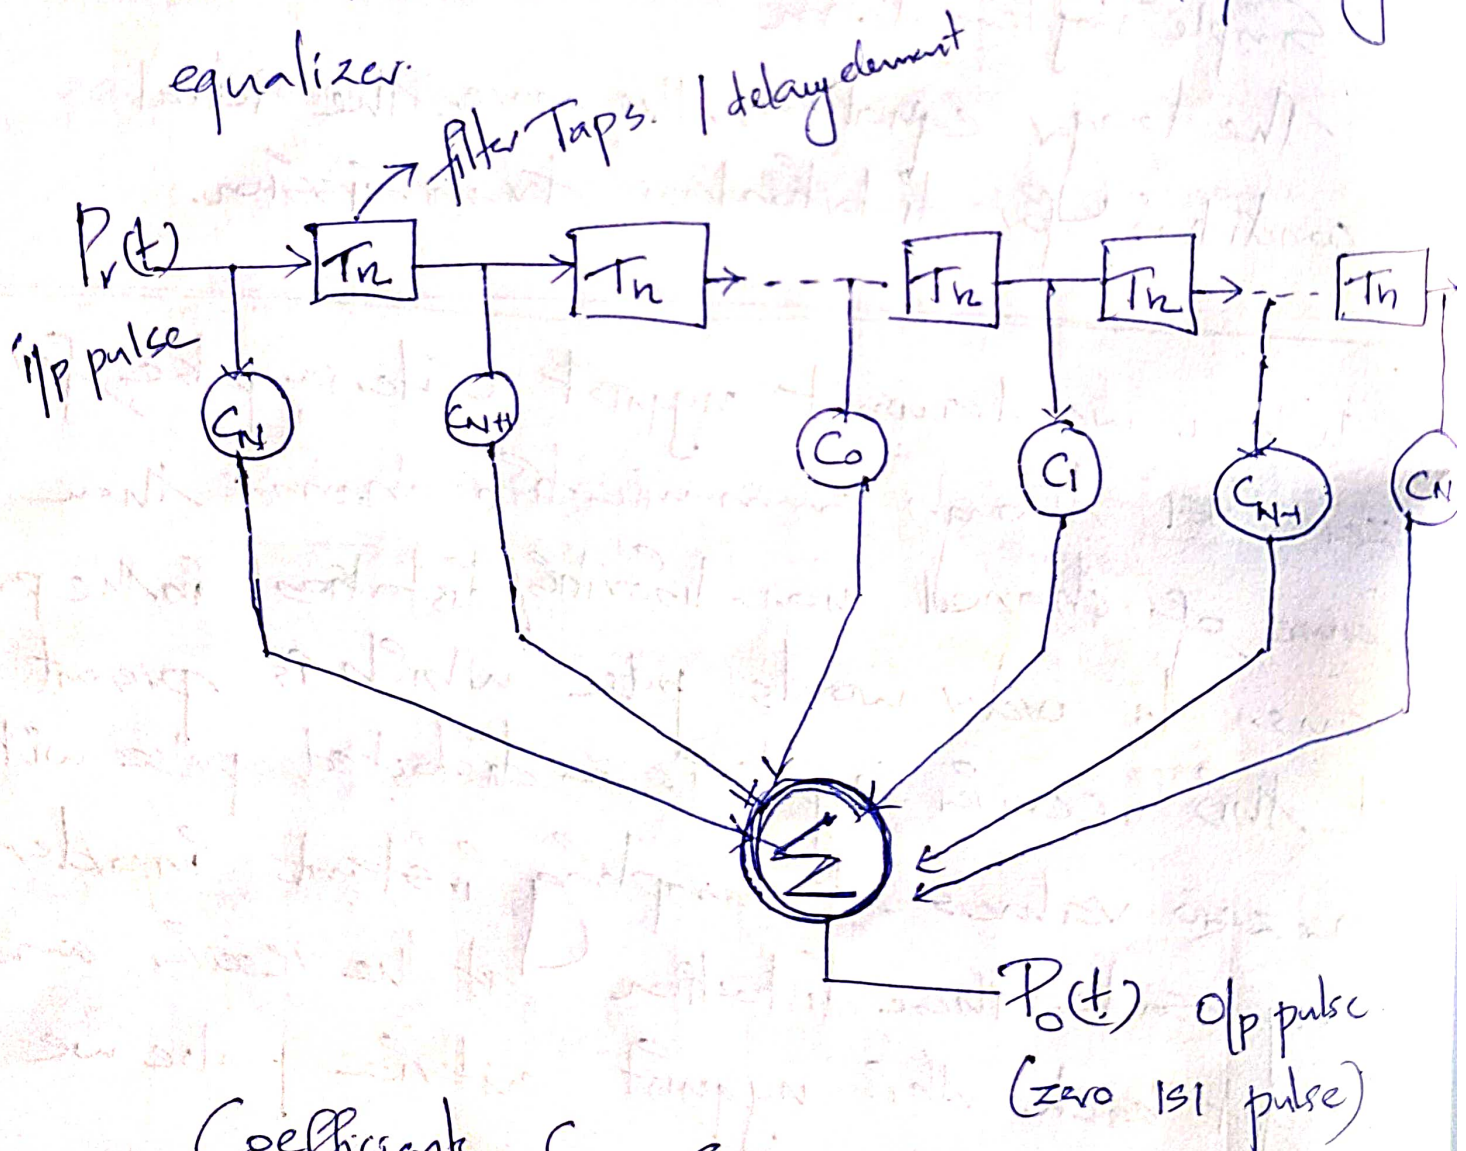 equalizer.
filter Taps. / delay element
Pr(t)
i/p pulse
Tn Tn Tn Tn Tn
CN CN+1 C0 C1 CN-1 CN
Σ
Po(t) o/p pulse
(zero ISI pulse)
Coefficient